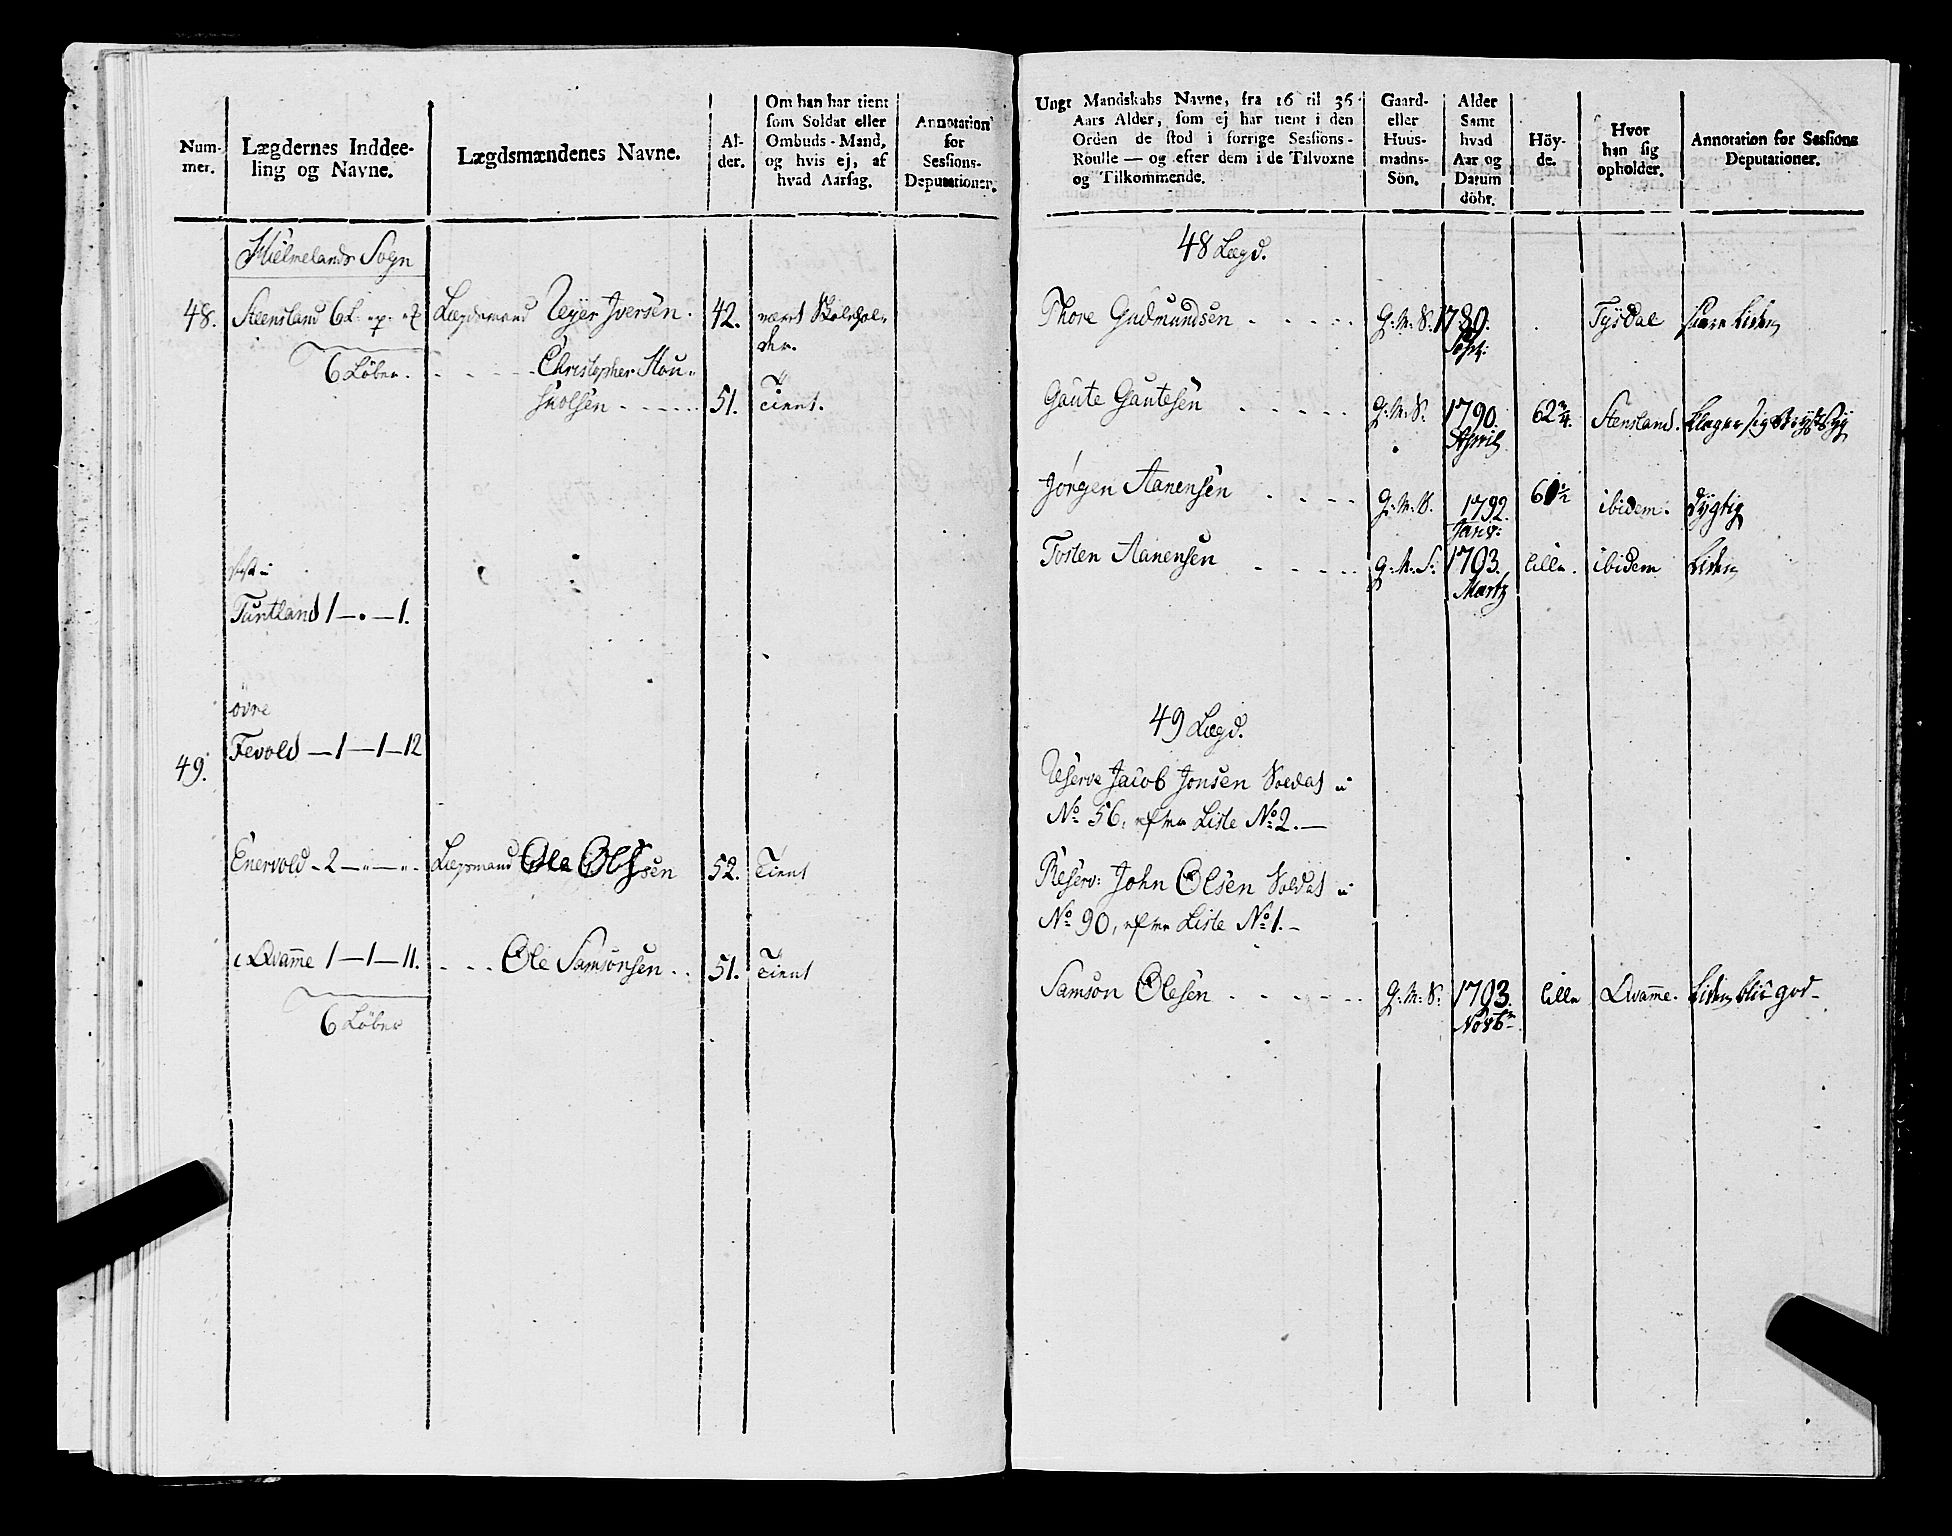 Num-
mer.
Lægdernes Inddee-
ling og Navne.
Lægdsmændenes Navne.
Al-
der.
Om han har tient
som Soldat eller
Ombuds-Mand,
og hvis ej, af
hvad Aarsag.
Annotation
for
Sessions-
Deputationer.
Hielmelands Sogn
48. Steensland 6 L.
Lægdsmand Reyer Jversen. 42. været Skolehol-
der.
6 Løber. Christopher Hou-
skolsen 51. Tient.
Tuntland 1 — • — 1.
øvre
49. Fevold — 1 — 1 — 12
Enervold - 2 — " — " - Lægsmand Ole Olssen 52. Tient
Qvam̄e 1 — 1 — 11. Ole Samsonsen 51. Tient
6 Løber
Ungt Mandskabs Navne, fra 16 til 36
Aars Alder, som ej har tient i den
Orden de stod i forrige Sessions-
Roulle — og efter dem i de Tilvoxne
og Tilkommende.
Gaard-
eller
Huus-
mands-
Sön.
Alder
Samt
hvad
Aar og
Datum
döbt.
Höy-
de.
Hvor
han sig
opholder.
Annotation for Sessions
Deputationer.
48 Lægd.
Thore Gudmundsen G: M: S. 1789. Tysdal liden
Sept:
Gaute Gautesen G: M: S. 1790. 62 3/4. Stensland. klager sig
April
Jørgen Aanensen G: M: S. 1792. ibidem. dygtig
Janv:
Tosten Aanensen G: M: S: 1793. lille. ibidem liden
Martz
49 Lægd.
Reserve Jacob Jonsen Soldat i
No. 56, efter Liste No. 2. —
Reserv: John Olsen Soldat i
No. 90, efter Liste No. 1. —
Samson Olesen G: M: S: 1793. lille Qvam̄e. liden bliv god
Novbr